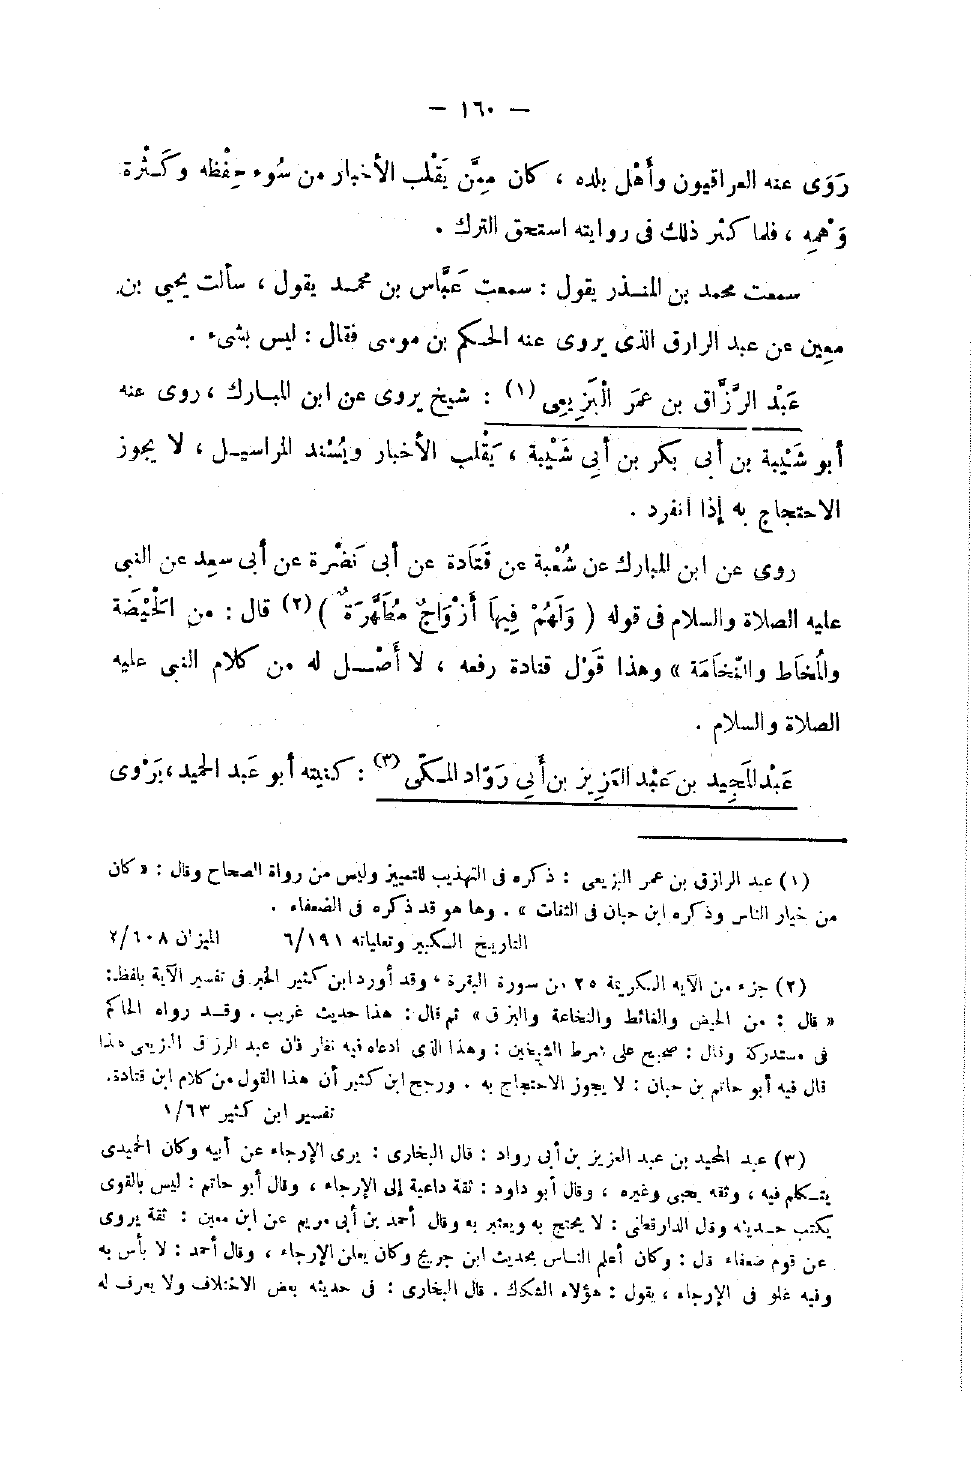 — ١٦٠ —
رَوَى عنه العراقيون وأَهْل بلده ، كان مِمَّن يَقْلب الأخبار من سُوء حِفْظه وكَـثْرة
وَهْمِه ، فلما كثر ذلك فى روايته استحق الترك .
سمعت محمد بن المنـذر يقول : سمعت عَبَّاس بن محمـد يقول ، سألت يحيى بن
معِين عن عبد الرازق الذى يروى عنه الحـكم بن موسى فقال : ليس بشىء .
عَبْد الرَّزَّاق بن عمَر الْبَزِيعِى (١) : شيخ يروى عن ابن المبـارك ، روى عنه
أبو شَيْبة بن أبى بكر بن أبى شَيْبة ، يَقْلب الأخبار ويُسْند المراسيـل ، لا يجوز
الاحتجاج به إذا انفرد .
روى عن ابن المبارك عن شُعْبة عن قَتَادة عن أبى نَضْرة عن أبى سعيد عن النبى
عليه الصلاة والسلام فى قوله ( وَلَهُمْ فِيهَا أَزْوَاجٌ مُطَهَّرَةٌ ) (٢) قال : من الْحَيْضَة
والمُخَاط والنّخَامَة » وهذا قَوْل قتادة رفعه ، لا أَصْـل له من كلام النبى عليه
الصلاة والسلام .
عَبْد المَجِيد بن عَبْد العَزِيز بن أَبِى رَوَّاد المـكّى (٣) : كنيته أبو عبد الحميد ، يَرْوى
(١) عبد الرازق بن عمر البزيعى : ذكره فى التهذيب للتمييز وليس من رواة الصحاح وقال : « كان
من خيار الناس وذكره ابن حبان فى الثقات » . وها هو قد ذكره فى الضعفاء .
التاريخ الـكبير وتعليقاته ٦/١٩١ الميزان ٢/٦٠٨
(٢) جزء من الآية الـكريمة ٢٥ من سورة البقرة ، وقد أورد ابن كثير الخبر فى تفسير الآية بلفظ :
« قال : من الحيض والغائط والنخاعة والبزاق » ثم قال : هذا حديث غريب . وقـد رواه الحاكم
فى مستدركة وقال : صحيح على شرط الشيخين : وهذا الذى ادعاه فيه نظر فان عبد الرزاق البزيعى هذا
قال فيه أبو حاتم بن حبان : لا يجوز الاحتجاج به . ورجح ابن كثير أن هذا القول من كلام ابن قتادة.
تفسير ابن كثير ١/٦٣
(٣) عبد المجيد بن عبد العزيز بن أبى رواد : قال البخارى : يرى الإرجاء عن أبيه وكان الحميدى
يتـكلم فيه ، وثقه يحيى وغيره ، وقال أبو داود : ثقة داعية إلى الإرجاء ، وقال أبو حاتم : ليس بالقوى
يكتب حـديثه وقال الدارقطنى : لا يحتج به ويعتبر به وقال أحمد بن أبى مريم عن ابن معين : ثقة يروى
عن قوم ضعفاء قال : وكان أعلم النـاس بحديث ابن جريج وكان يعلن الإرجاء ، وقال أحمد : لا بأس به
وفيه غلو فى الإرجاء ، يقول : هؤلاء الشكاك . قال البخارى : فى حديثه بعض الاختلاف ولا يعرف له